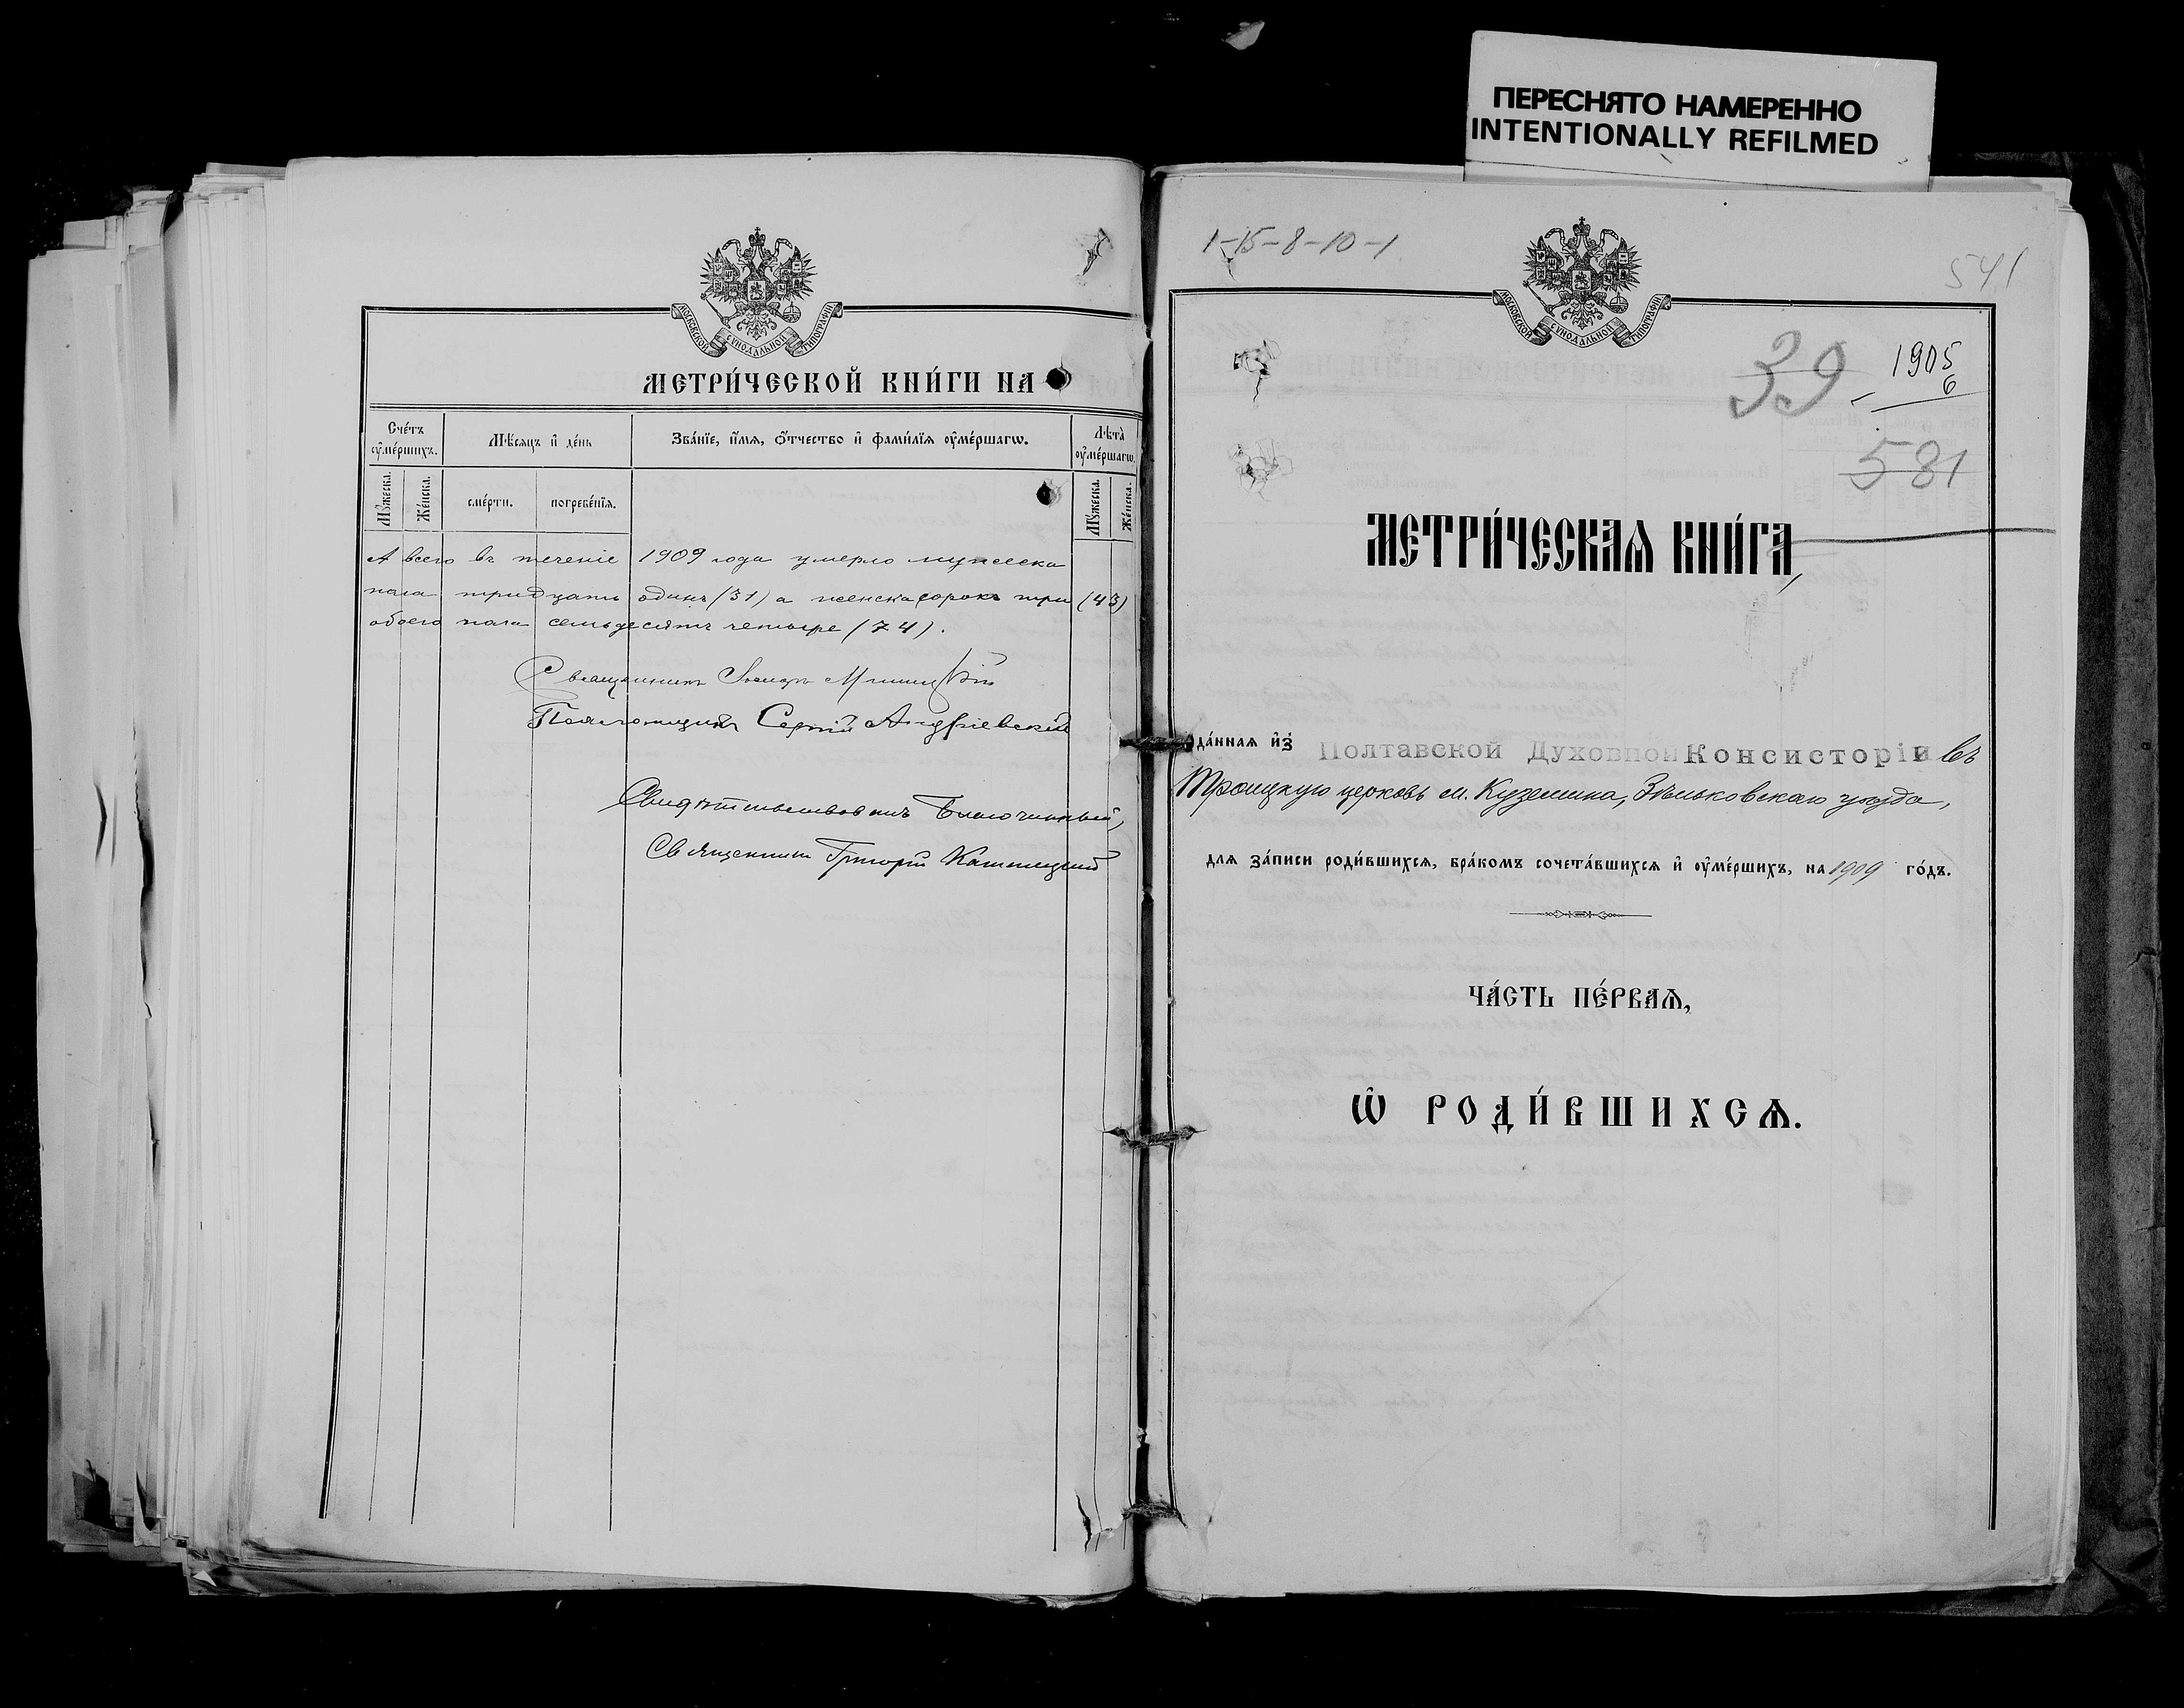 ПЕРЕСНЯТО НАМЕРЕННО
INTENTIONALLY REFILMED
МОСКОВСКОЙ СѴНОДАЛЬНОЙ ТИПОГРАФІИ
МЕТРИ́ЧЕСКОЙ КНИ́ГИ НА
Сче́тъ ᲂу҆ме́ршихъ.
Мѣ́сяцъ и҆ де́нь
Зва́нїе, и҆́мѧ, ѻ҆́тчество и҆ фами́лїѧ ᲂу҆ме́ршагѡ.
Лѣта̀ ᲂу҆ме́ршагѡ.
Мꙋ́жеска.
Же́нска.
сме́рти.
погребе́нїѧ.
Мꙋ́жеска.
Же́нска.
А всего въ теченіе 1909 года умерло мужеска
пола тридцать одинъ (31) а женска сорокъ три (43)
обоего пола семьдесятъ четыре (74).
Священникъ
Псаломщикъ Сергій Андріевскій
Свидѣтельствовалъ Благочинный,
Священникъ Григорій
1-15-8-10-1
541
МОСКОВСКОЙ СѴНОДАЛЬНОЙ ТИПОГРАФІИ
39
1905
6
581
МЕТРИ́ЧЕСКАѦ КНИ́ГА,
да́нная и҆з̾ Полтавской Духовной Консисторіи въ
Троицкую церковь м. Куземина, Зѣньковскаго уѣзда,
для за́писи роди́вшихсѧ, бра́комъ сочета́вшихсѧ и҆ ᲂу҆ме́ршихъ, на 1909 го́дъ.
ЧА́СТЬ ПЕ́РВАѦ,
Ѡ҆ РОДИ́ВШИХСѦ.